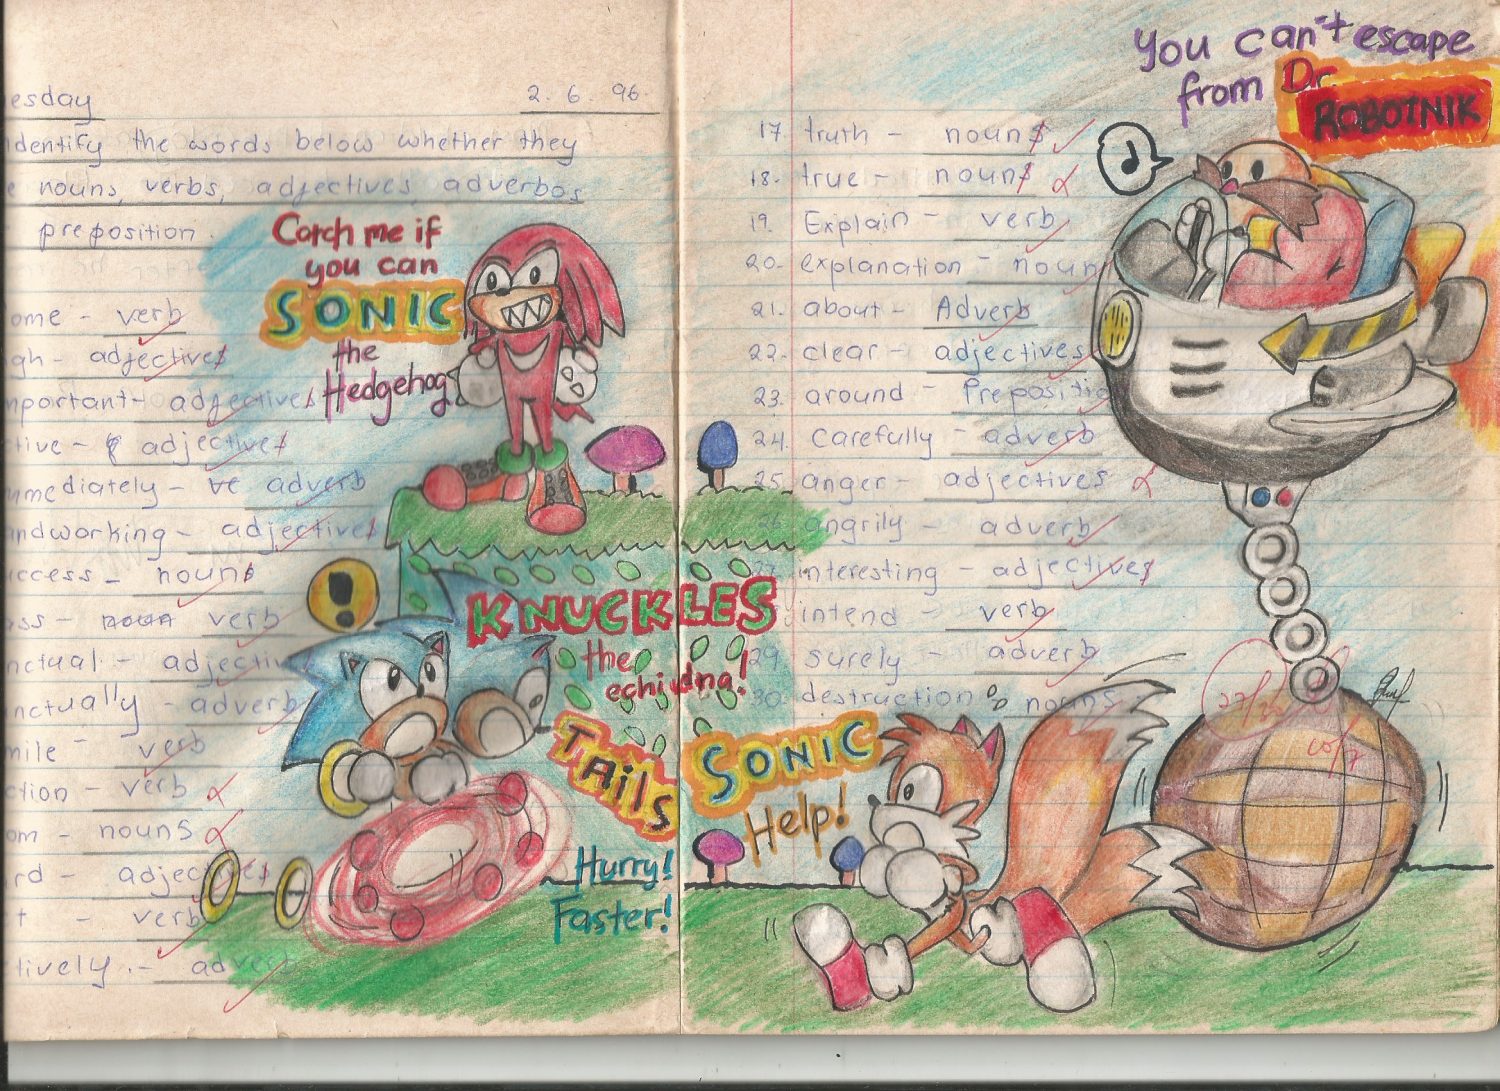 esday
2. 6. 96.
identify the words below whether they
nouns, verbs, adjectives, adverbos
preposition.
ome - verb
gh - adjectives
mportant - adjectives
tive - adjectives
mmediately - ve adverb
andworking - adjectives
ccess - nouns
ss - noun verb
nctual - adjectiv
nctually - adverb
mile - verb
ction - verb
om - nouns
rd - adjectives
t - verb
tively. - adverb
Catch me if
you can
SONIC
the
Hedgehog
!
KNUCKLES
the
echidna!
TAils
Hurry!
Faster!
You can't escape
from Dr.
ROBOTNIK
17. truth - nouns
18. true - nouns
19. Explain - verb
20. explanation - noun
21. about - Adverb
22. clear - adjectives
23. around - Prepositio
24. carefully - adverb
25. anger - adjectives
26. angrily - adverb
27. interesting - adjectives
intend - verb
29. surely - adverb
30. destruction - nouns
SONIC
Help!